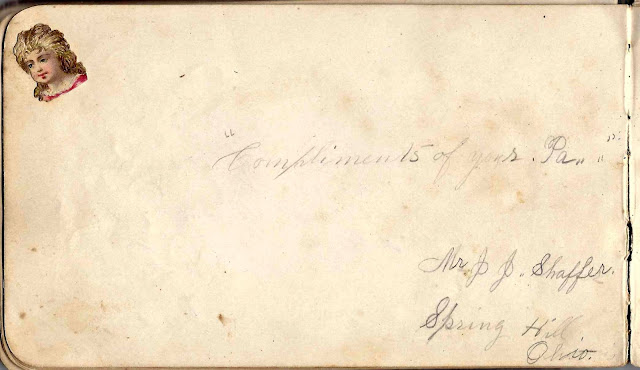 "Compliments of your Pa„ „"
Mr J J. Shaffer.
Spring Hill
Ohio.